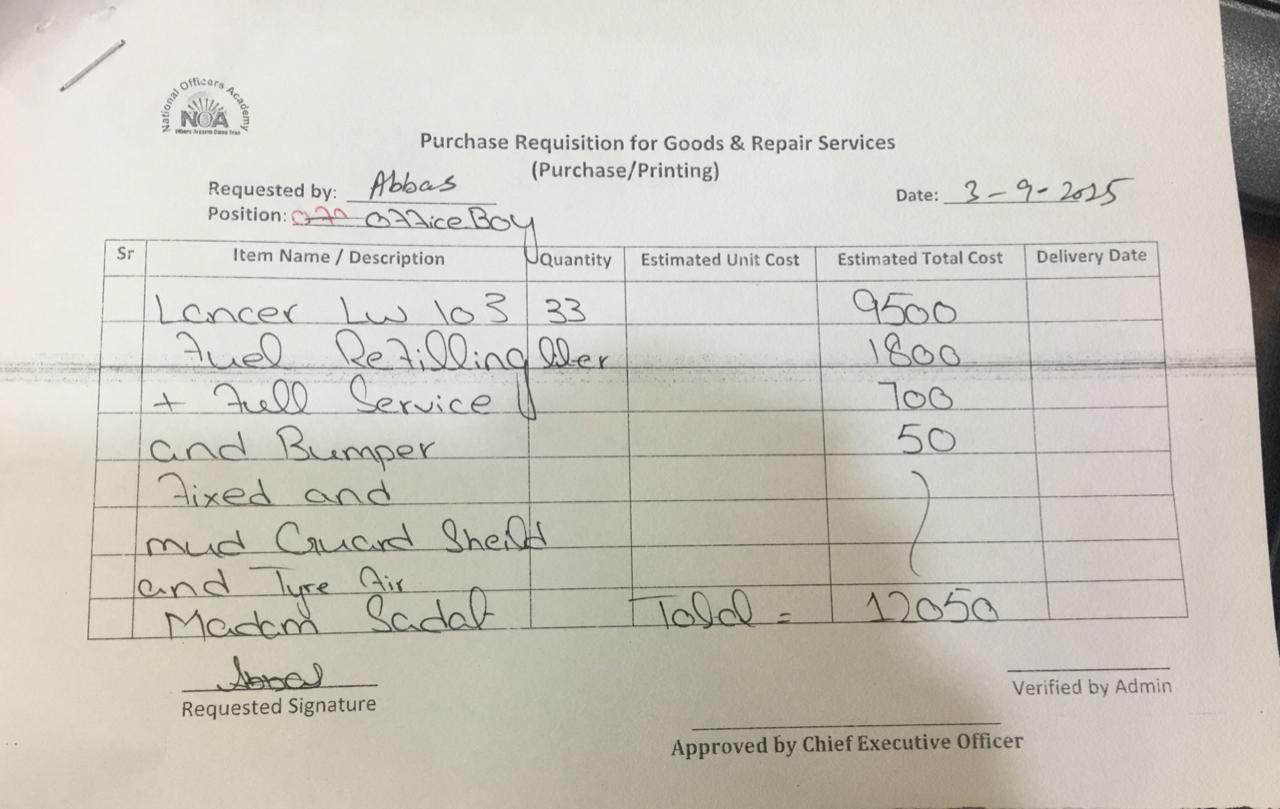 National Officers Academy
NOA
Purchase Requisition for Goods & Repair Services
(Purchase/Printing)
Requested by: Abbas
Date: 3-9-2025
Position: Office Boy
Sr Item Name / Description Quantity Estimated Unit Cost Estimated Total Cost Delivery Date
Lancer LW 103 33 9500
Fuel Refilling liter 1800
+ Full Service 700
and Bumper 50
Fixed and
mud Guard Sheild
and Tyre Air
Madam Sadaf Total = 12050
Abbas
Requested Signature
Verified by Admin
Approved by Chief Executive Officer